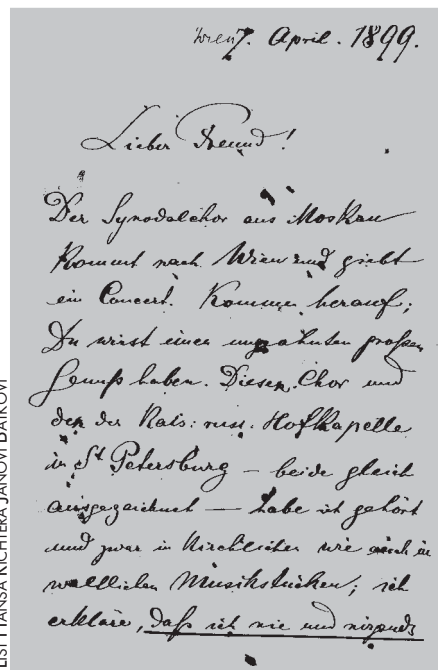 Wien 7. April. 1899.
Lieber Freund!
Der Synodalchor aus Moskau
kommt nach Wien und giebt
ein Concert. Komme herauf;
Du wirst einen ungeahnten großen
Genuß haben. Diesen Chor und
den der Kais: russ. Hofkapelle
in St Petersburg – beide gleich
ausgezeichnet – habe ich gehört
und zwar in kirchlichen wie auch in
weltlichen Musikstücken; ich
erkläre, daß ich nie und nirgends
LISTY HANSA RICHTERA JANOVI BATKOVI